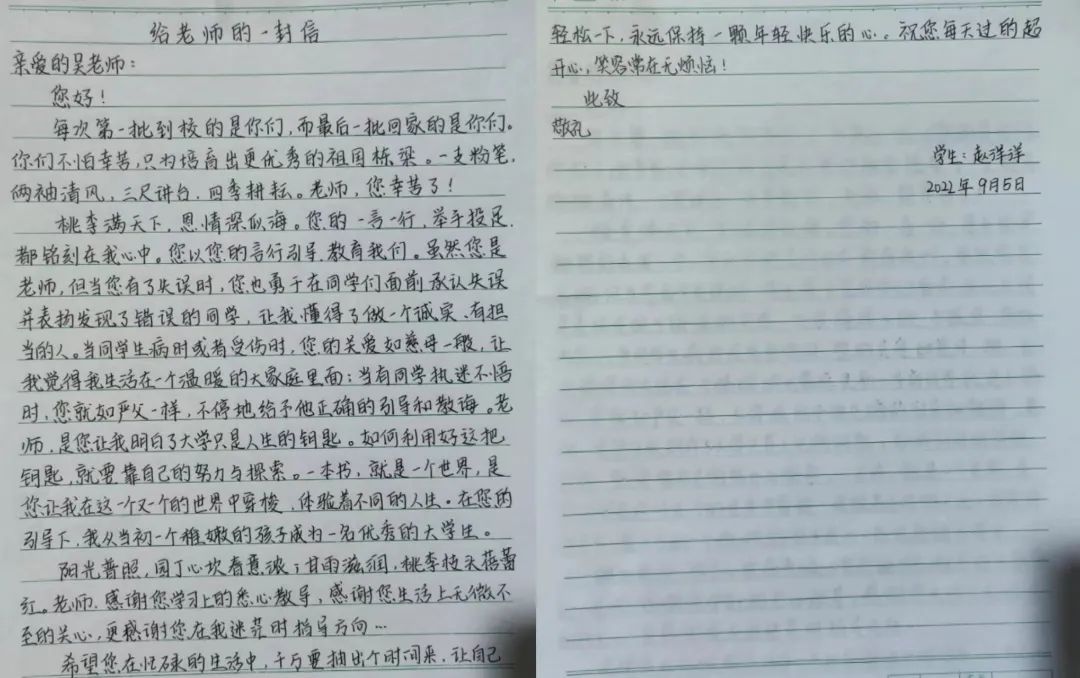 给老师的一封信
亲爱的吴老师：
您好！
每次第一批到校的是你们，而最后一批回家的是你们。
你们不怕幸苦，只为培育出更优秀的祖国栋梁。一支粉笔，
两袖清风，三尺讲台，四季耕耘。老师，您幸苦了！
桃李满天下，恩情深似海。您的一言一行，举手投足，
都铭刻在我心中。您以您的言行引导，教育我们。虽然您是
老师，但当您有了失误时，您也勇于在同学们面前承认失误
并表扬发现了错误的同学，让我懂得了做一个诚实、有担
当的人。当同学生病时或者受伤时，您的关爱如慈母一般，让
我觉得我生活在一个温暖的大家庭里面；当有同学执迷不悟
时，您就如严父一样，不停地给予他正确的引导和教诲。老
师，是您让我明白了大学只是人生的钥匙。如何利用好这把
钥匙，就要靠自己的努力与探索。一本书，就是一个世界，是
您让我在这一个又一个的世界中穿梭，体验着不同的人生。在您的
引导下，我从当初一个稚嫩的孩子成为一名优秀的大学生。
阳光普照，园丁心坎春意浓；甘雨滋润，桃李枝头蓓蕾
红。老师，感谢您学习上的悉心教导，感谢您生活上无微不
至的关心，更感谢您在我迷茫时指导方向…
希望您在忙碌的生活中，千万要抽出个时间来，让自己
轻松一下，永远保持一颗年轻快乐的心。祝您每天过的超
开心，笑容常在无烦恼！
此致
敬礼
学生：赵洋洋
2022年9月5日